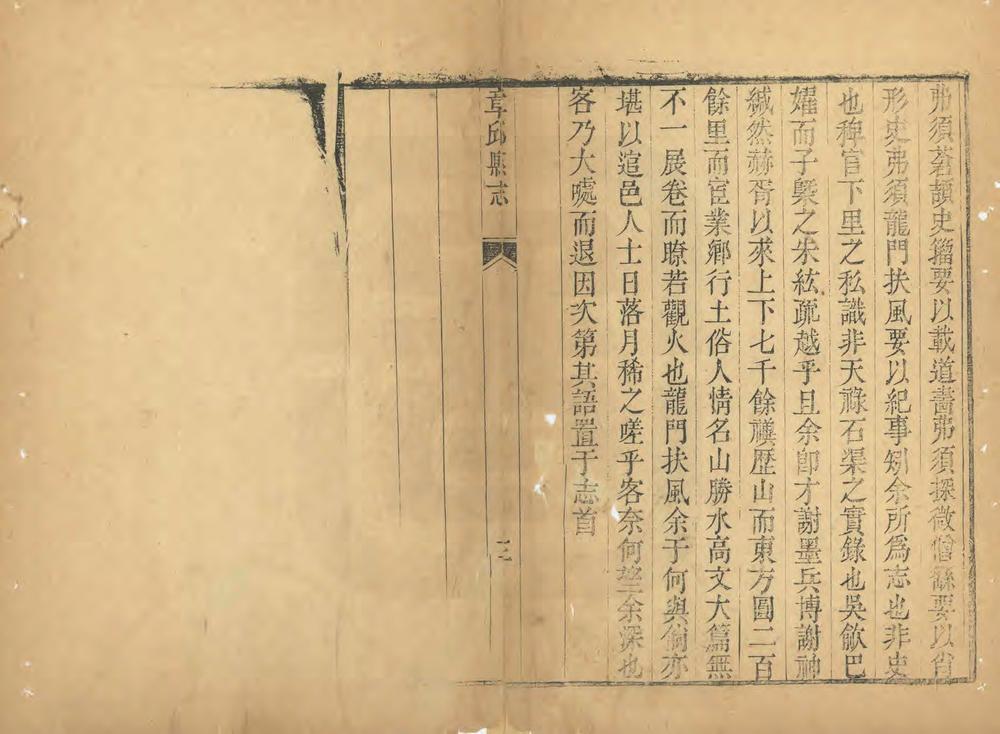 弗須蒼頡史籀要以載道書弗須探微
要以肖
形史弗須龍門扶風要以紀事矧余所爲志也非史
也稗官下里之私識非天祿石渠之實錄也吳歈巴
嬥而子槩之朱絃疏越乎且余卽才謝墨兵博謝神
緘然赫胥以來上下七千餘禩歷山而東方圓二百
餘里而宦業鄉行土俗人情名山勝水高文大篇無
不一展卷而瞭若觀火也龍門扶風余于何與倘亦
堪以逭邑人士日落月稀之嗟乎客奈何望余深也
客乃大噱而退因次第其語置于志首
章邱縣志
三